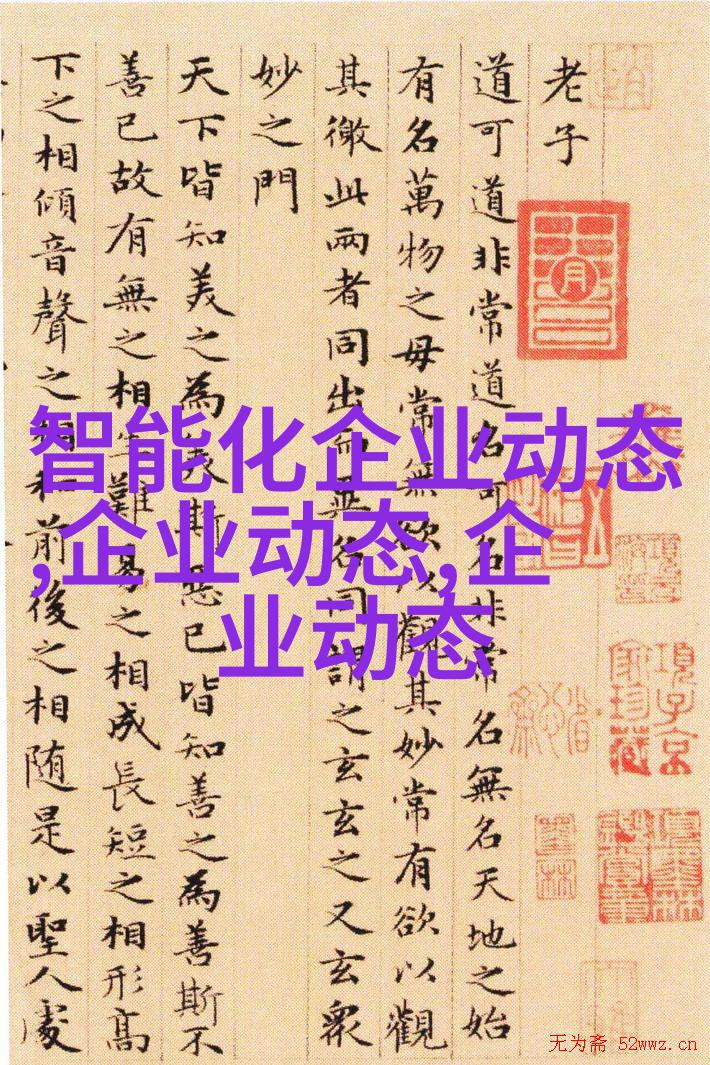 老子
道可道非常道名可名非常名無名天地之始
有名萬物之母常無欲以觀其妙常有欲以觀
其徼此兩者同出而異名同謂之玄玄之又玄眾
妙之門
天下皆知美之為美斯惡已皆知善之為善斯不
善已故有無之相生難易之相成長短之相形高
下之相傾音聲之相和前後之相随是以聖人處
智能化企业动态
,企业动态,企
业动态
項子京
家珍藏
无为斋 52wwz.cn